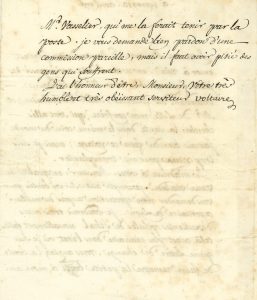 Mr. Vasselier, qui me la feroit tenir par la
poste. je vous demande bien pardon d'une
commission pareille; mais il faut avoir pitié des
gens qui souffrent.
J'ai l'honneur d'être, Monsieur, Vôtre très
humble et très obéissant serviteur voltaire